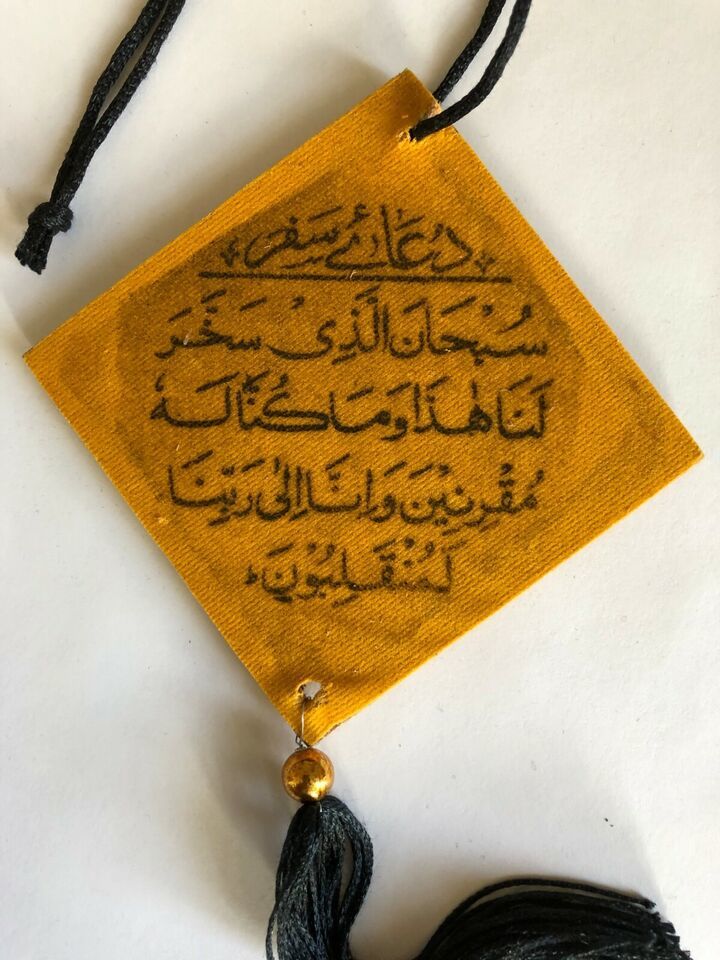 دُعَائے سَفَر
سُبْحَانَ الَّذِیْ سَخَّرَ
لَنَا هٰذَا وَمَا كُنَّا لَهٗ
مُقْرِنِیْنَ وَاِنَّا اِلٰی رَبِّنَا
لَمُنْقَلِبُوْنَ